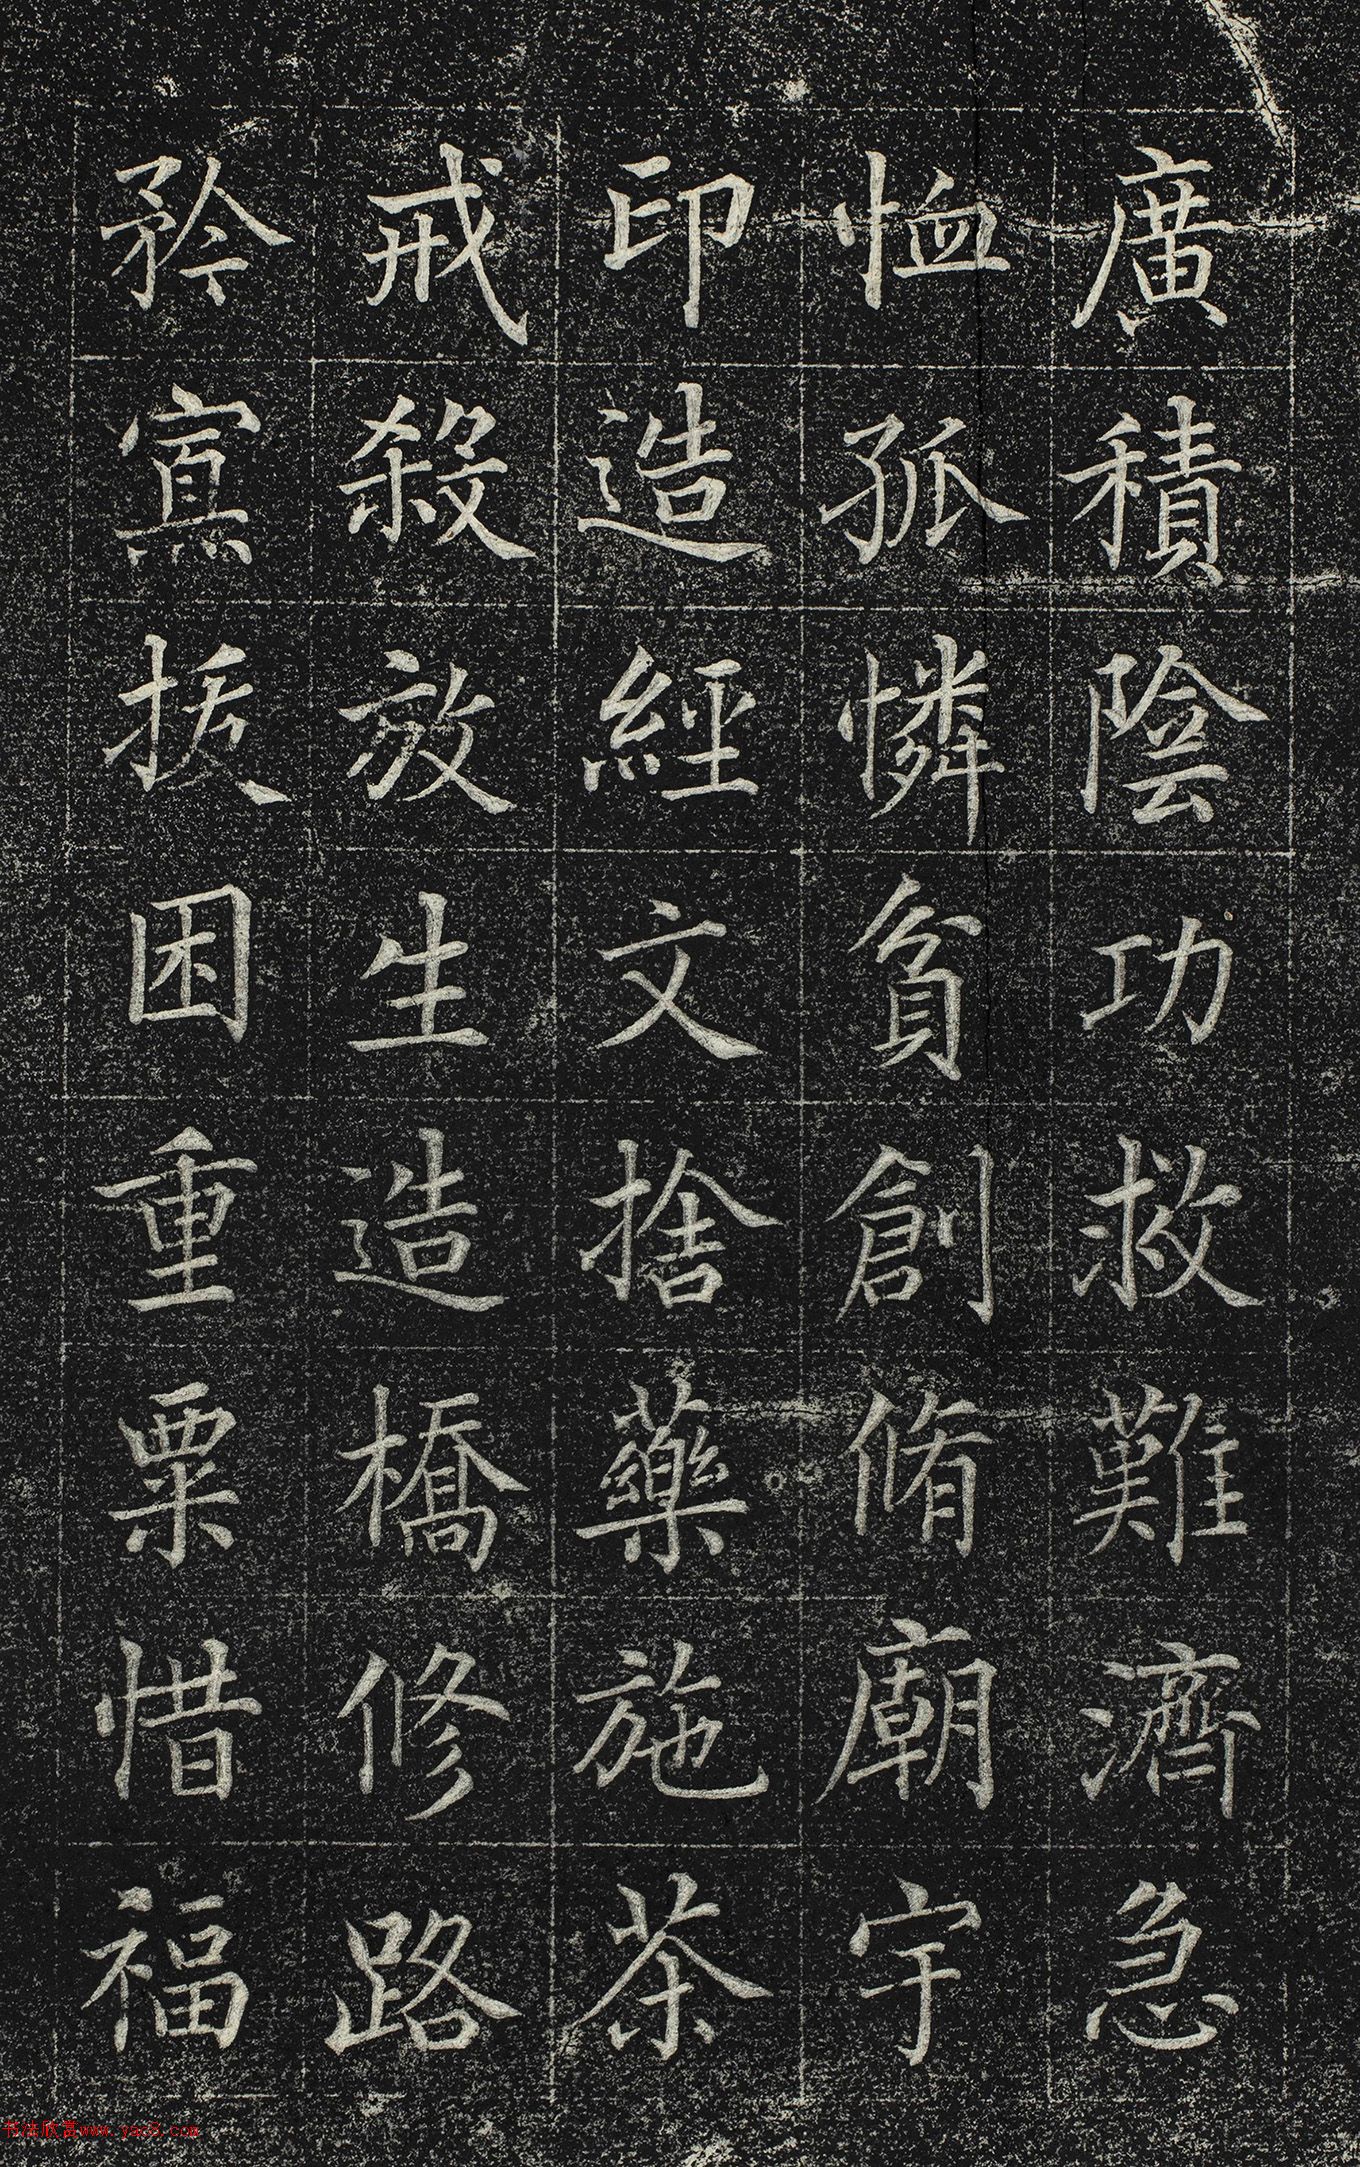 廣積陰功救難濟急
恤孤憐貧創脩廟宇
印造經文捨藥施茶
戒殺放生造橋修路
矜寡拔困重粟惜福
书法欣赏www.yac8.com